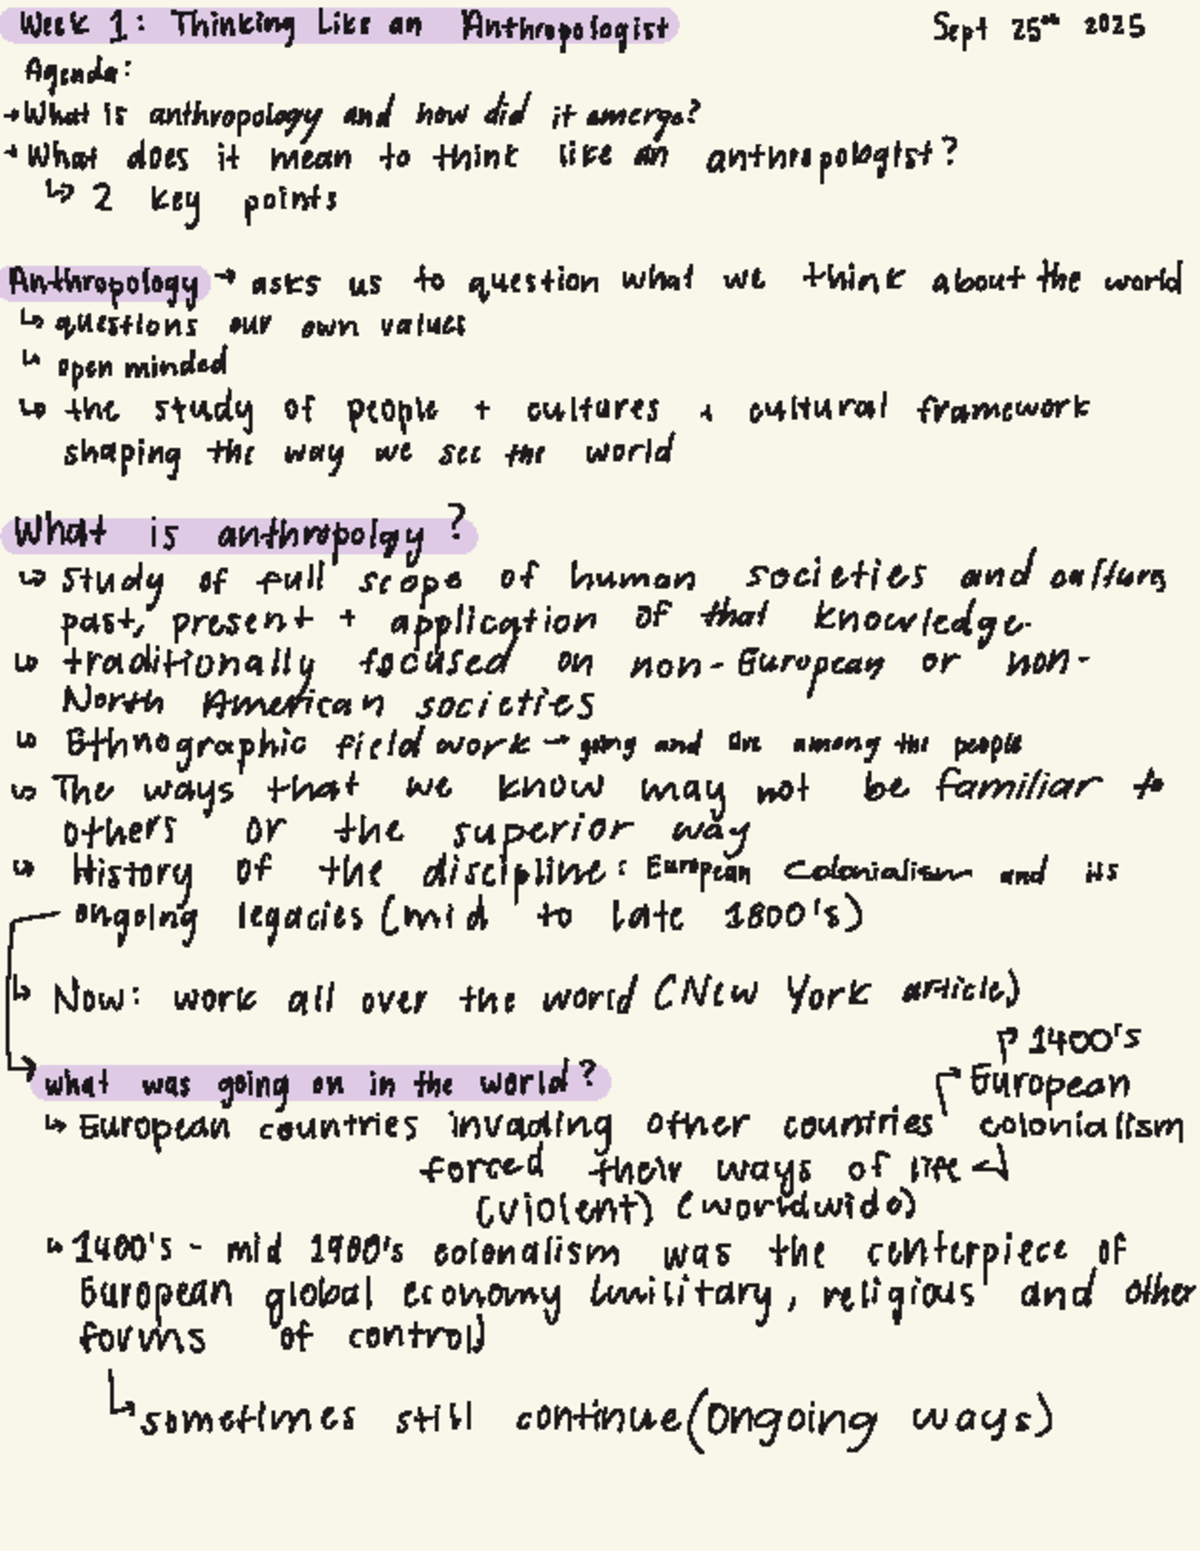 Week 1: Thinking Like an Anthropologist Sept 25th 2025
Agenda:
→ What is anthropology and how did it emerge?
→ What does it mean to think like an anthropologist?
↳ 2 key points
Anthropology → asks us to question what we think about the world
↳ questions our own values
↳ open minded
↳ the study of people + cultures + cultural framework
shaping the way we see the world
What is anthropolgy?
↳ Study of full scope of human societies and culture,
past, present + application of that knowledge.
↳ traditionally focused on non-European or non-
North American societies
↳ Ethnographic field work → going and live among the people
↳ The ways that we know may not be familiar to
others or the superior way
↳ History of the discipline: European Colonialism and its
ongoing legacies (mid to late 1800's)
↳ Now: work all over the world (New York article)
↱ 1400's
what was going on in the world? ↱ European
↳ European countries invading other countries colonialism
forced their ways of life ↲
(violent) (worldwide)
↳ 1400's - mid 1900's colonalism was the centerpiece of
European global economy (military, religious and other
forms of control)
↳ sometimes still continue (ongoing ways)